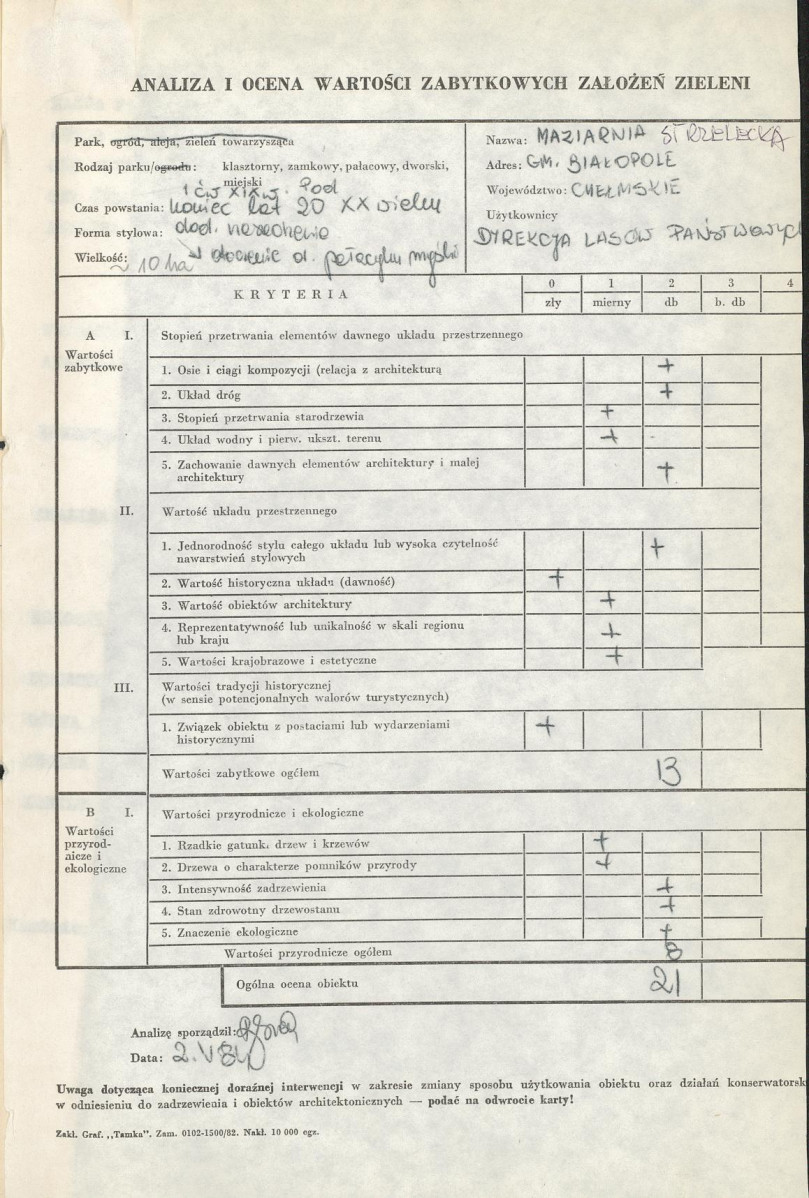 ANALIZA I OCENA WARTOŚCI ZABYTKOWYCH ZAŁOŻEŃ ZIELENI
Park, ogród, aleja, zieleń towarzysząca
Rodzaj parku/ogrodu: klasztorny, zamkowy, pałacowy, dworski, miejski
1 ćw XIX w. Pod
Czas powstania: koniec lat 20 XX wieku
Forma stylowa:
Wielkość: ~ 10 ha
Nazwa: MAZIARNIA STRZELECKA
Adres: GM. BIAŁOPOLE
Województwo: CHEŁMSKIE
Użytkownicy
DYREKCJA LASÓW PAŃSTWOWYCH
KRYTERIA
0 1 2 3 4
zły mierny db b. db
A I. Stopień przetrwania elementów dawnego układu przestrzennego
Wartości zabytkowe
1. Osie i ciągi kompozycji (relacja z architekturą +
2. Układ dróg +
3. Stopień przetrwania starodrzewia +
4. Układ wodny i pierw. ukszt. terenu + -
5. Zachowanie dawnych elementów architektury i małej
architektury +
II. Wartość układu przestrzennego
1. Jednorodność stylu całego układu lub wysoka czytelność
nawarstwień stylowych +
2. Wartość historyczna układu (dawność) +
3. Wartość obiektów architektury +
4. Reprezentatywność lub unikalność w skali regionu
lub kraju +
5. Wartości krajobrazowe i estetyczne +
III. Wartości tradycji historycznej
(w sensie potencjonalnych walorów turystycznych)
1. Związek obiektu z postaciami lub wydarzeniami
historycznymi +
Wartości zabytkowe ogółem 13
B I. Wartości przyrodnicze i ekologiczne
Wartości
przyrod-
nicze i
ekologiczne
1. Rzadkie gatunki drzew i krzewów +
2. Drzewa o charakterze pomników przyrody +
3. Intensywność zadrzewienia +
4. Stan zdrowotny drzewostanu +
5. Znaczenie ekologiczne +
Wartości przyrodnicze ogółem 8
Ogólna ocena obiektu 21
Analizę sporządził:
Data: 2.V
Uwaga dotycząca koniecznej doraźnej interwencji w zakresie zmiany sposobu użytkowania obiektu oraz działań konserwatorsk
w odniesieniu do zadrzewienia i obiektów architektonicznych — podać na odwrocie karty!
Zakł. Graf. „Tamka". Zam. 0102-1500/82. Nakł. 10 000 egz.